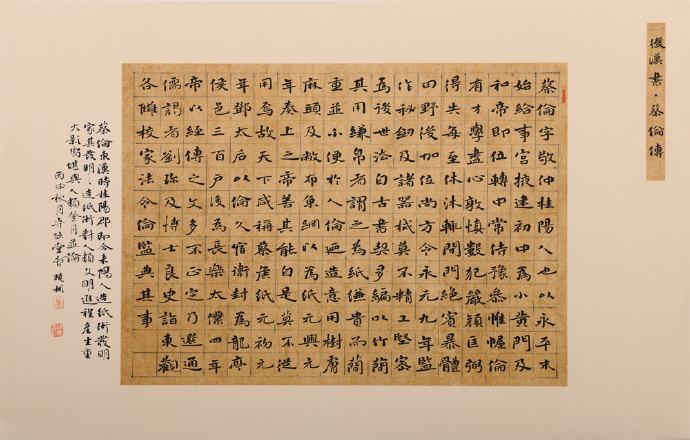 後漢書·蔡倫傳
蔡倫字敬仲桂陽人也以永平末
始給事宮掖建初中為小黃門及
和帝即位轉中常侍豫參帷幄倫
有才學盡心敦慎數犯嚴顏匡弼
得失每至休沐輒閉門絕賓暴體
田野後加位尚方令永元九年監
作秘劎及諸器械莫不精工堅密
為後世法自古書契多編以竹簡
其用縑帛者謂之為紙縑貴而簡
重並不便於人倫迺造意用樹膚
麻頭及敝布魚網以為紙元興元
年奏上之帝善其能自是莫不從
用焉故天下咸稱蔡侯紙元初元
年鄧太后以倫久宿衛封為龍亭
侯邑三百戶後為長樂太僕四年
帝以經傳之文多不正定乃選通
儒謁者劉珍及博士良史詣東觀
各讎校家法令倫監典其事
蔡倫東漢時桂陽郡即今耒陽人造紙術發明
家其發明之造紙術對人類文明進程產生重
大影響堪與人類登月並論
丙申秋月堂曹